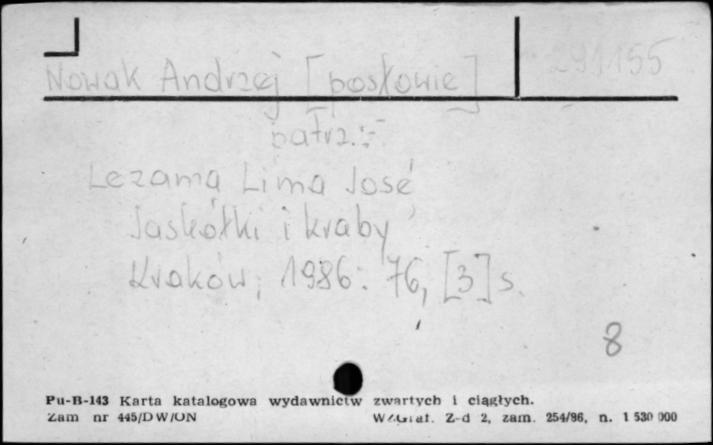 Nowak Andrzej [posłowie] 291155
patrz:
Lezama Lima José
Jaskółki i kraby
Kraków, 1986. 76, [3] s.
8
Pu-B-143 Karta katalogowa wydawnictw zwartych i ciągłych.
Zam nr 445/DW/UN WZGraf. Z-d 2, zam. 254/86, n. 1 530 000